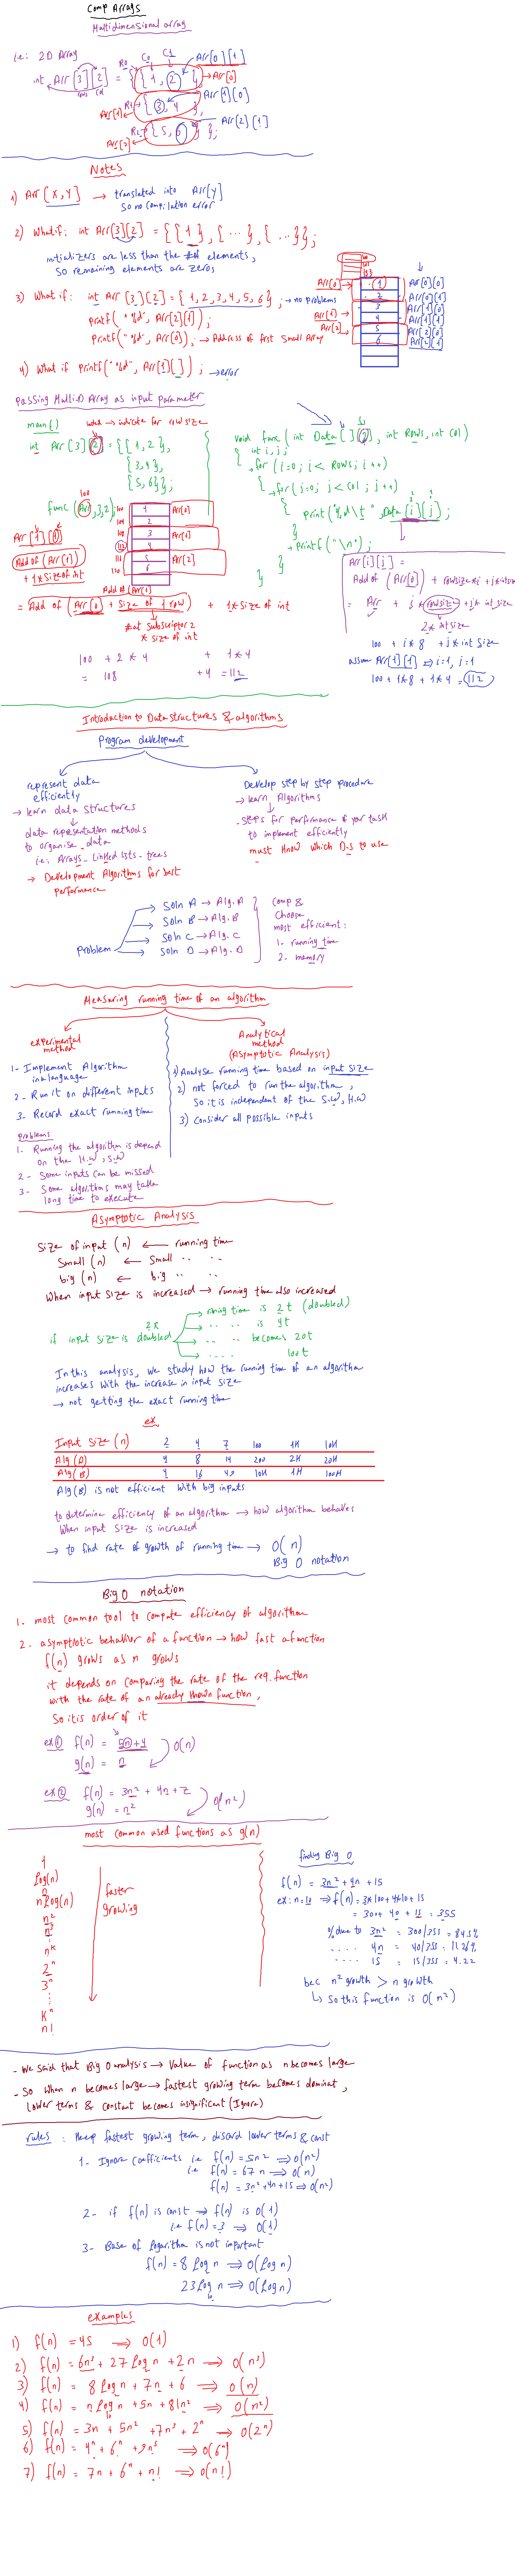 Comp Arrays
Multidimensional array
i.e: 2D Array
R0 C0 C1 Arr[0][1]
int Arr[3][2] = { { 1, 2 }, → Arr[0]
rows col
R1 { 3, 4 }, Arr[1][0]
Arr[1]
R2 { 5, 6 } }; Arr[2][1]
Arr[2]
Notes
1) Arr[x,y] → translated into Arr[y]
So no compilation error
2) What if: int Arr[3][2] = { {1}, {...}, {...}};
initializers are less than the # of elements,
So remaining elements are zeros
3) What if: int Arr[3][2] = {1,2,3,4,5,6}; → no problems
printf("%d", Arr[2][1]);
printf("%d", Arr[0]); → Address of first small Array
Arr[0] 1 Arr[0][0]
2 Arr[0][1]
Arr[1] 3 Arr[1][0]
4 Arr[1][1]
Arr[2] 5 Arr[2][0]
6 Arr[2][1]
4) What if printf("%d", Arr[1][ ]); → error
passing Multi.D Array as input parameter
main() → indicate for row size
int Arr[3][2] = {{1,2},
{3,4},
{5,6}};
100
func(Arr,3,2);
100 1 Arr[0]
104 2
108 3 Arr[1]
112 4
116 5 Arr[2]
120 6
Arr[1][1]
Add of (Arr[1])
+ 1*Sizeof int
Add of (Arr[1])
= Add of (Arr[0] + Size of 1 row) + 1* Size of int
# at subscripter 2
* size of int
100 + 2*4 + 1*4
= 108 + 4 = 112
void func(int Data[ ][2], int Rows, int Col)
{ int i,j;
for(i=0; i< Rows; i++)
{ for(j=0; j< Col; j++)
{ print("%d\t", Data[i][j]);
}
printf("\n");
}
}
Arr[i][j] =
Add of (Arr[0]) + rowsize*i + j*intsize
= Arr + i*rowsize + j* int size
2* int size
100 + i*8 + j* int size
assume Arr[1][1] ⇔ i=1, j=1
100 + 1*8 + 1*4 = 112
Introduction to Data structures & algorithms
Program development
represent data
efficiently
→ learn data structures
data representation methods
to organise data
i.e: Arrays - Linked lists - trees
→ Development Algorithms for best
performance
Develop step by step procedure
→ learn Algorithms
- steps for performance of your task
to implement efficiently
must know which D.S to use
Problem
Soln A → Alg. A
Soln B → Alg. B
Soln C → Alg. C
Soln D → Alg. D
Comp &
Choose
most efficient:
1. running time
2. memory
Measuring running time of an algorithm
experimental
method
1- Implement Algorithm
in a language
2- Run it on different inputs
3. Record exact running time
problems
1. Running the algorithm is depend
on the H.W, S.W
2- Some inputs can be missed
3- Some algorithms may take
long time to execute
Analytical
method
(Asymptotic Analysis)
1) Analyse running time based on input size
2) not forced to run the algorithm,
So it is independent of the S.W, H.W
3) Consider all possible inputs
Asymptotic Analysis
Size of input (n) ← running time
Small (n) ← Small .. ..
big (n) ← big .. ..
When input size is increased → running time also increased
2x
if input size is doubled
→ runing time is 2t (doubled)
→ .. .. is 4t
→ .. .. becomes 20t
→ .. .. 100t
In this analysis, we study how the running time of an algorithm
increases with the increase in input size
→ not getting the exact running time
ex
Input size (n) 2 4 7 100 1K 10K
Alg (A) 4 8 14 200 2K 20K
Alg (B) 4 16 49 10K 1M 100M
Alg (B) is not efficient with big inputs
to determine efficiency of an algorithm → how algorithm behaves
When input size is increased
→ to find rate of growth of running time → O(n)
Big O notation
Big O notation
1. most common tool to compute efficiency of algorithm
2- asymptotic behavior of a function → how fast a function
f(n) grows as n grows
it depends on comparing the rate of the req. function
with the rate of an already known function,
So it is order of it
ex① f(n) = 5n+4
g(n) = n O(n)
ex② f(n) = 3n² + 4n + 2
g(n) = n² O(n²)
most common used functions as g(n)
1
log(n)
n
n log(n)
n²
n³
⋮
nᵏ
2ⁿ
3ⁿ
⋮
kⁿ
n!
faster
growing
finding Big O
f(n) = 3n² + 4n + 15
ex: n=10 ⇒ f(n) = 3*100+4*10+15
= 300 + 40 + 15 = 355
% due to 3n² = 300/355 = 84.5%
.... 4n = 40/355 = 11.26%
.... 15 = 15/355 = 4.22
bec n² growth > n growth
↳ So this function is O(n²)
- We said that Big O analysis → Value of function as n becomes large
- So when n becomes large → fastest growing term becomes dominat,
Lower terms & constant becomes insignificant (Ignore)
rules : Keep fastest growing term, discard lower terms & const
1- Ignore Coefficients i.e f(n) = 5n² ⇒ O(n²)
i.e f(n) = 67n ⇒ O(n)
f(n) = 3n²+4n+15 ⇒ O(n²)
2- if f(n) is const → f(n) is O(1)
i.e f(n) = 3 ⇒ O(1)
3- Base of logarithm is not important
f(n) = 8 log n ⇒ O(log n)
23 log₁₀ n ⇒ O(log n)
examples
1) f(n) = 45 ⇒ O(1)
2) f(n) = 6n³ + 27 log n + 2n ⇒ O(n³)
3) f(n) = 8 log n + 7n + 6 ⇒ O(n)
4) f(n) = n log₁₀ n + 5n + 81n² ⇒ O(n²)
5) f(n) = 3n + 5n² + 7n³ + 2ⁿ ⇒ O(2ⁿ)
6) f(n) = 4ⁿ + 6ⁿ + 9n⁵ ⇒ O(6ⁿ)
7) f(n) = 7n + 6ⁿ + n! ⇒ O(n!)